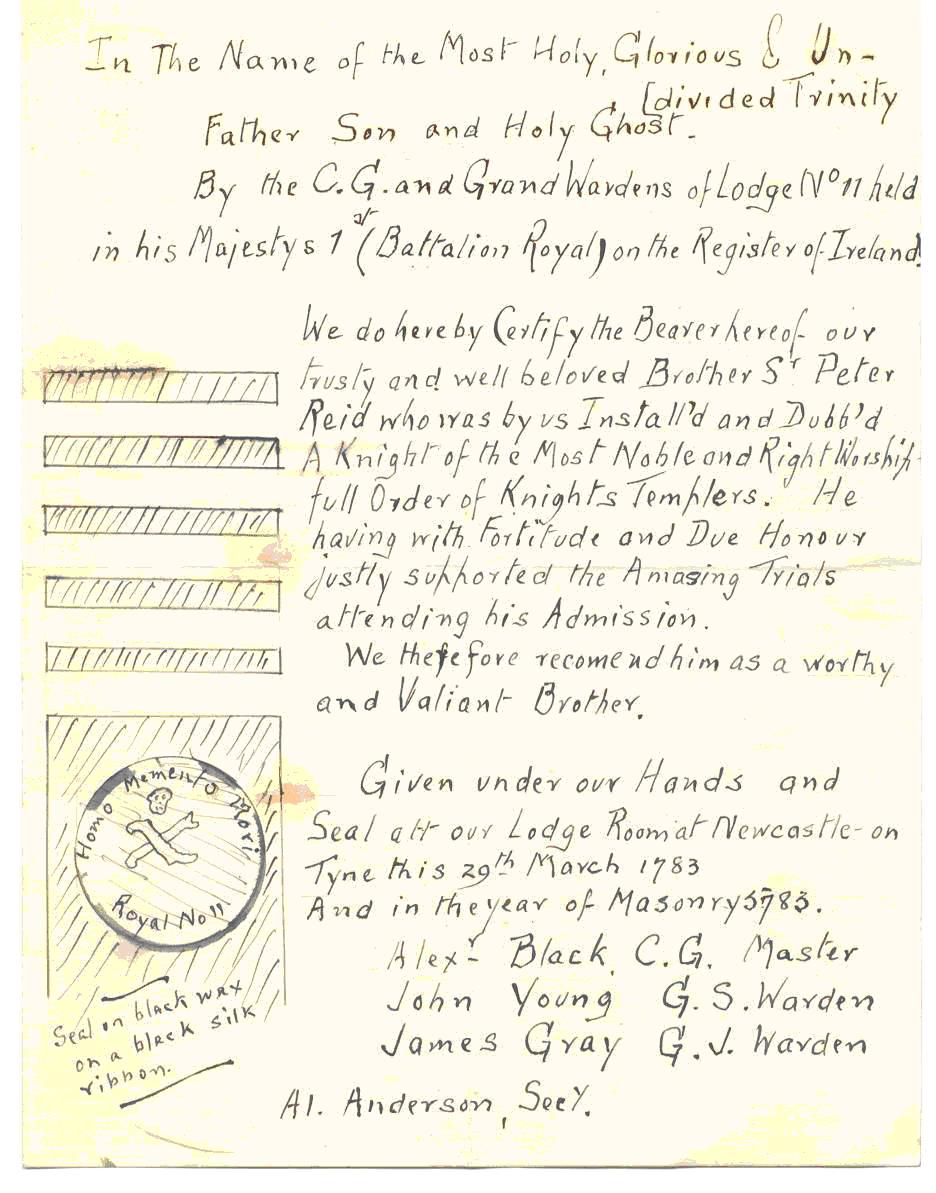 In The Name of the Most Holy, Glorious & Un-
[divided Trinity
Father Son and Holy Ghost.
By the C.G. and Grand Wardens of Lodge No 11 held
in his Majestys 1st (Battalion Royal) on the Register of Ireland.
We do hereby Certify the Bearer hereof our
trusty and well beloved Brother Sr Peter
Reid who was by us Install'd and Dubb'd
A Knight of the Most Noble and Right Worship-
full Order of Knights Templers. He
having with Fortitude and Due Honour
justly supported the Amasing Trials
attending his Admission.
We thefefore recomend him as a worthy
and Valiant Brother.
Given under our Hands and
Seal att our Lodge Room at Newcastle-on
Tyne this 29th March 1783
And in the year of Masonry 5783.
Alexr Black, C.G. Master
John Young G.S. Warden
James Gray G.J. Warden
Al. Anderson, Secy.
Homo Memento Mori
Royal No 11
Seal on black wax
on a black silk
ribbon.